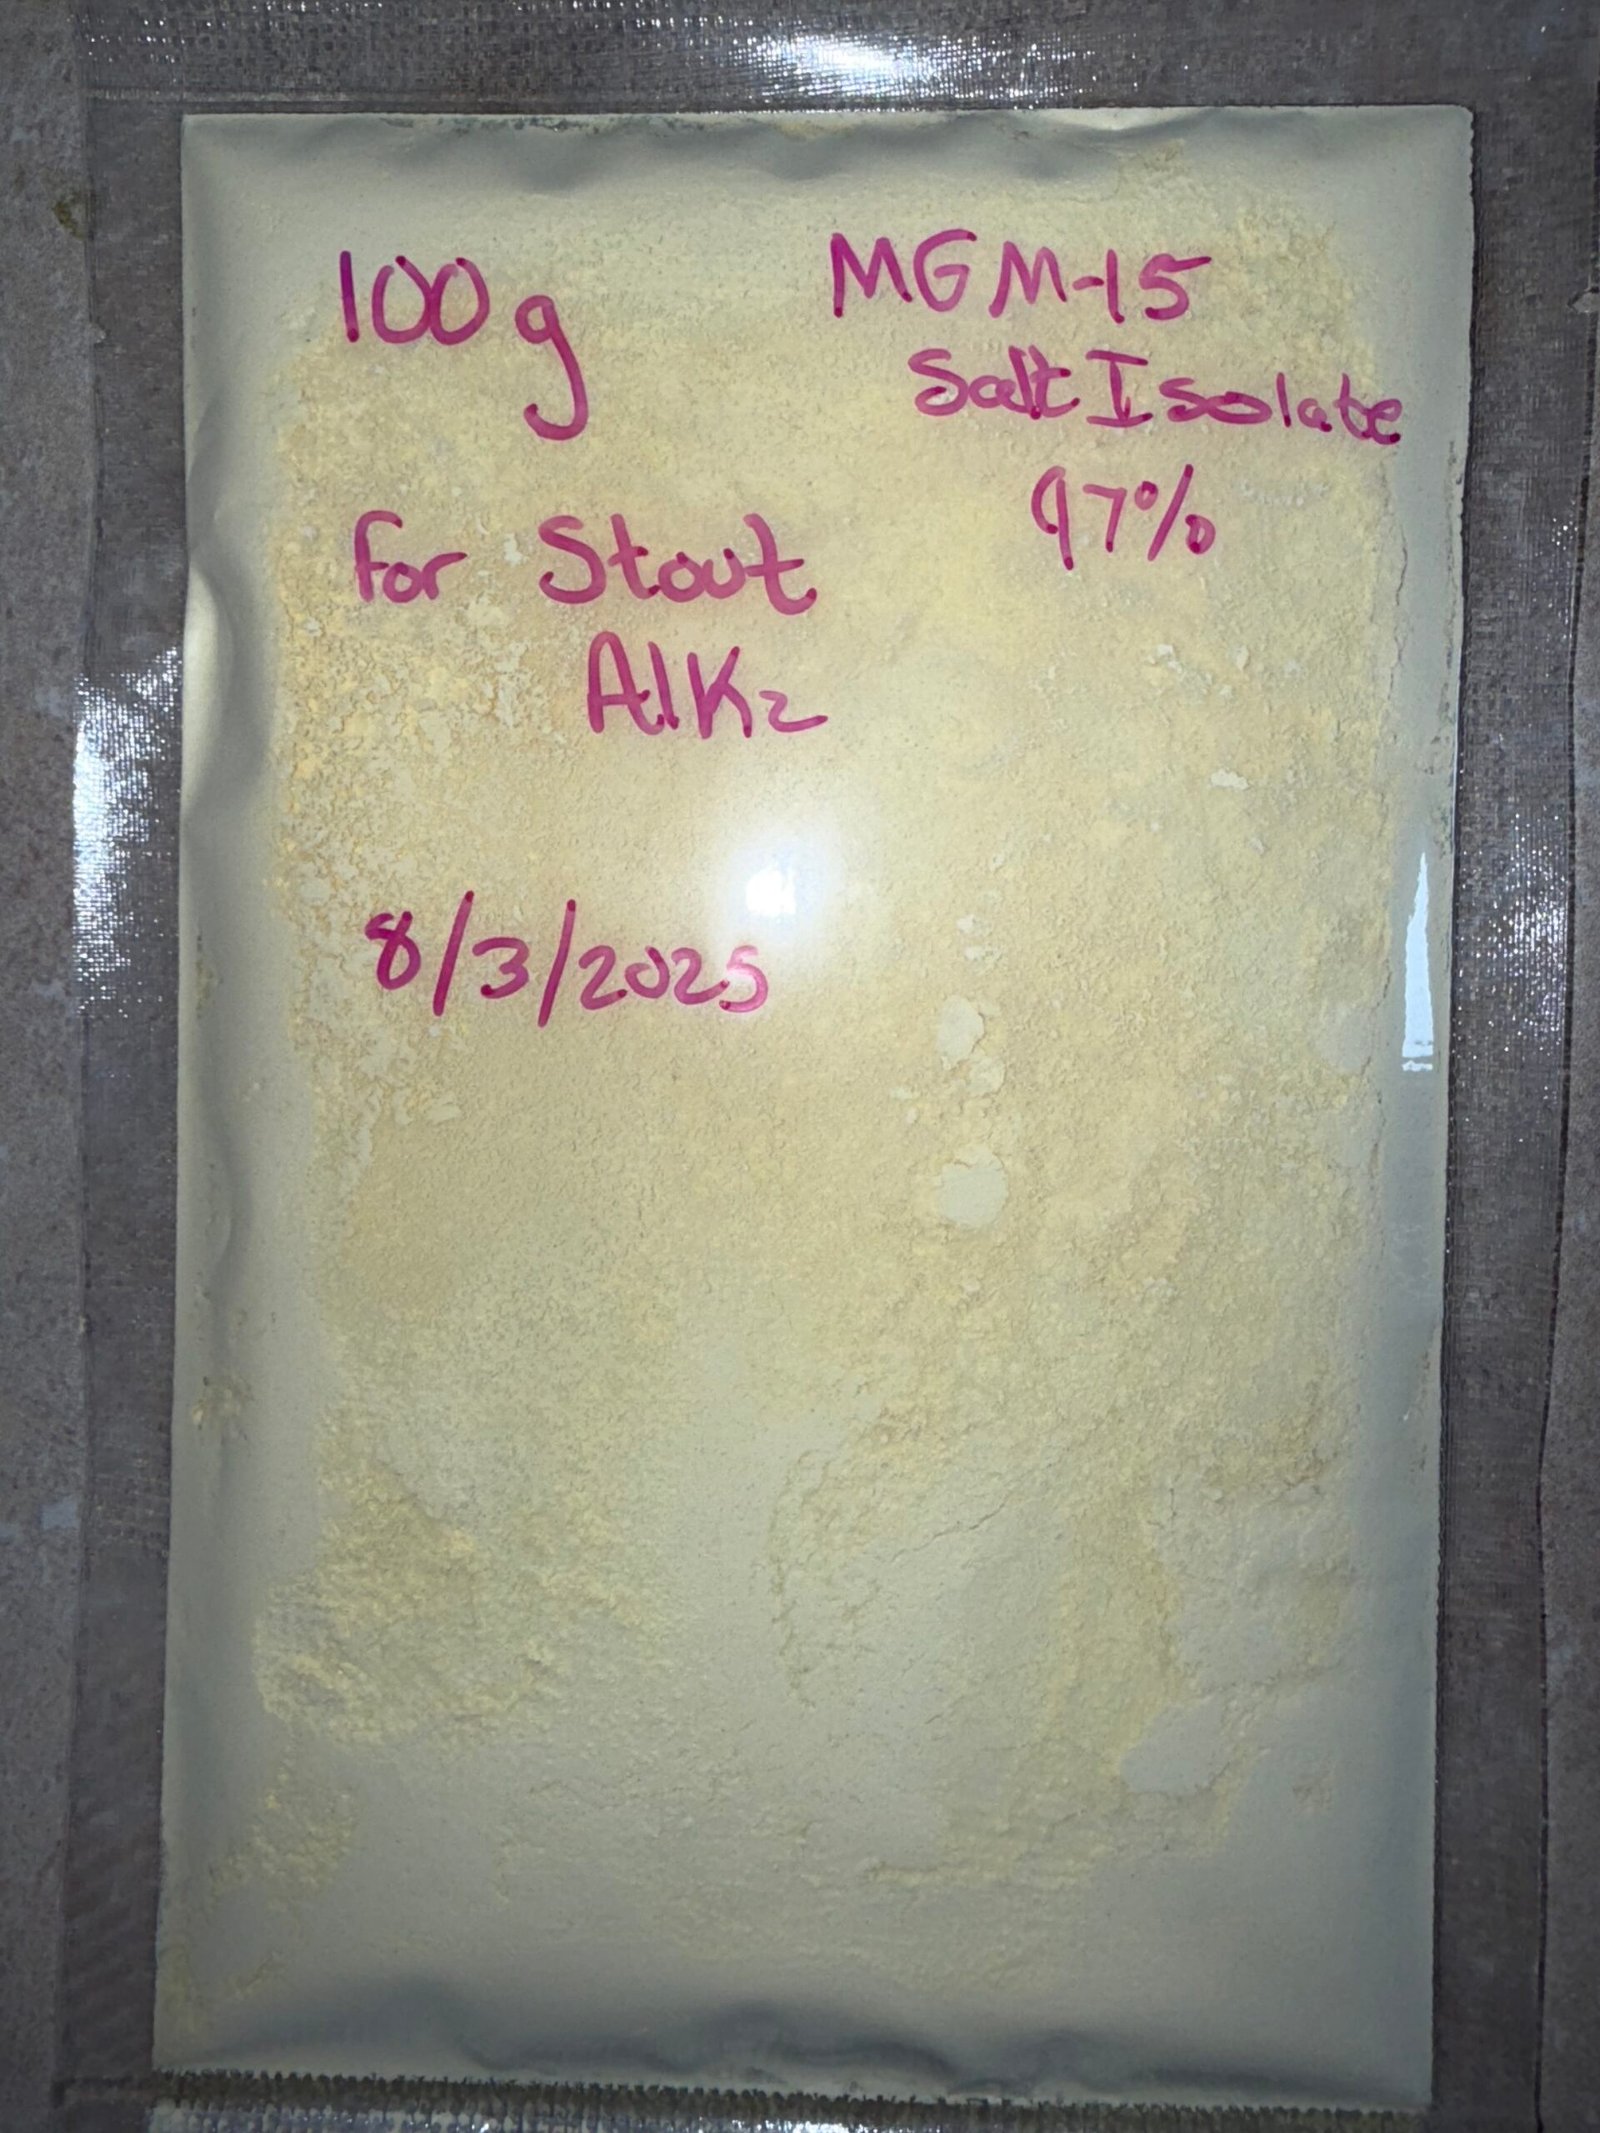 100g
MGM-15
Salt Isolate
97%
For Stout
AlKz
8/3/2025